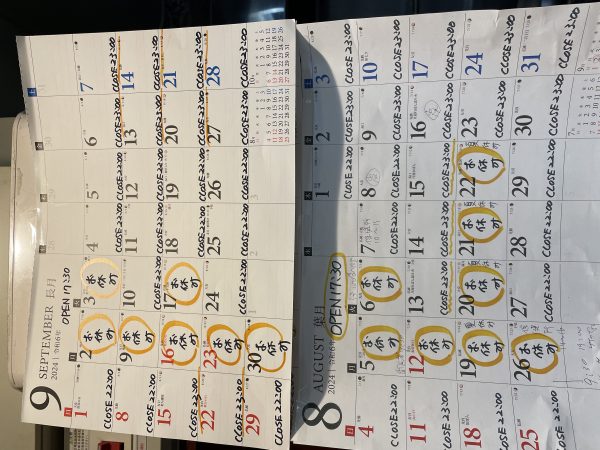 9 SEPTEMBER 長月
2024 令和6年
OPEN 17:30
日 月 火 水 木 金 土
1 2 3 4 5 6 7
CLOSE 22:00 お休み お休み CLOSE 22:00 CLOSE 22:00 CLOSE 23:00 CLOSE 23:00
8 9 10 11 12 13 14
CLOSE 22:00 お休み CLOSE 22:00 CLOSE 22:00 CLOSE 22:00 CLOSE 23:00 CLOSE 23:00
15 16 17 18 19 20 21
CLOSE 22:00 お休み お休み CLOSE 22:00 CLOSE 22:00 CLOSE 23:00 CLOSE 23:00
22 23 24 25 26 27 28
CLOSE 22:00 お休み CLOSE 22:00 CLOSE 22:00 CLOSE 22:00 CLOSE 23:00 CLOSE 23:00
29 30
CLOSE 22:00 お休み
8 AUGUST 葉月
2024 令和6年
OPEN 17:30
日 月 火 水 木 金 土
1 2 3
CLOSE 22:00 CLOSE 23:00 CLOSE 23:00
4 5 6 7 8 9 10
CLOSE 22:00 お休み お休み CLOSE 22:00 CLOSE 22:00 CLOSE 23:00 CLOSE 23:00
11 12 13 14 15 16 17
CLOSE 22:00 お休み CLOSE 22:00 CLOSE 22:00 CLOSE 22:00 CLOSE 23:00 CLOSE 23:00
18 19 20 21 22 23 24
CLOSE 22:00 お休み お休み お休み お休み CLOSE 23:00 CLOSE 23:00
25 26 27 28 29 30 31
CLOSE 22:00 お休み CLOSE 22:00 CLOSE 22:00 CLOSE 22:00 CLOSE 23:00 CLOSE 23:00